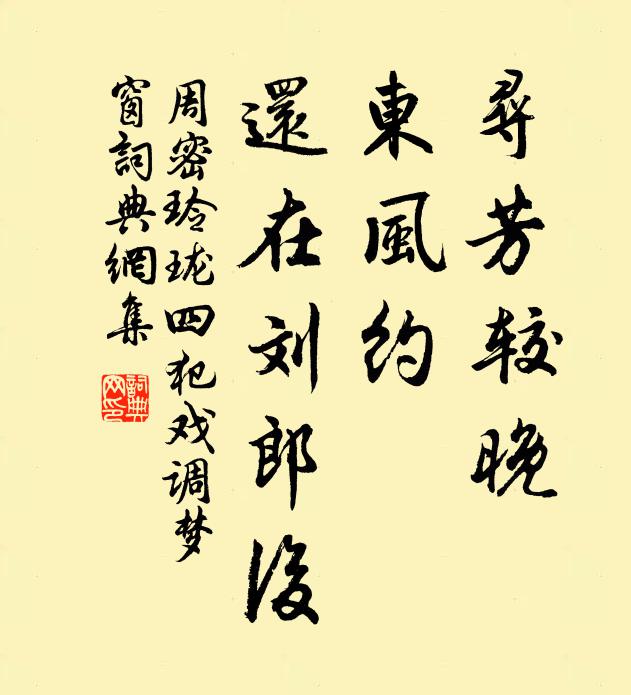 尋芳较晚
東風約
還在刘郎後
周密玲珑四犯戏调梦
窗詞典網集
詞典网印